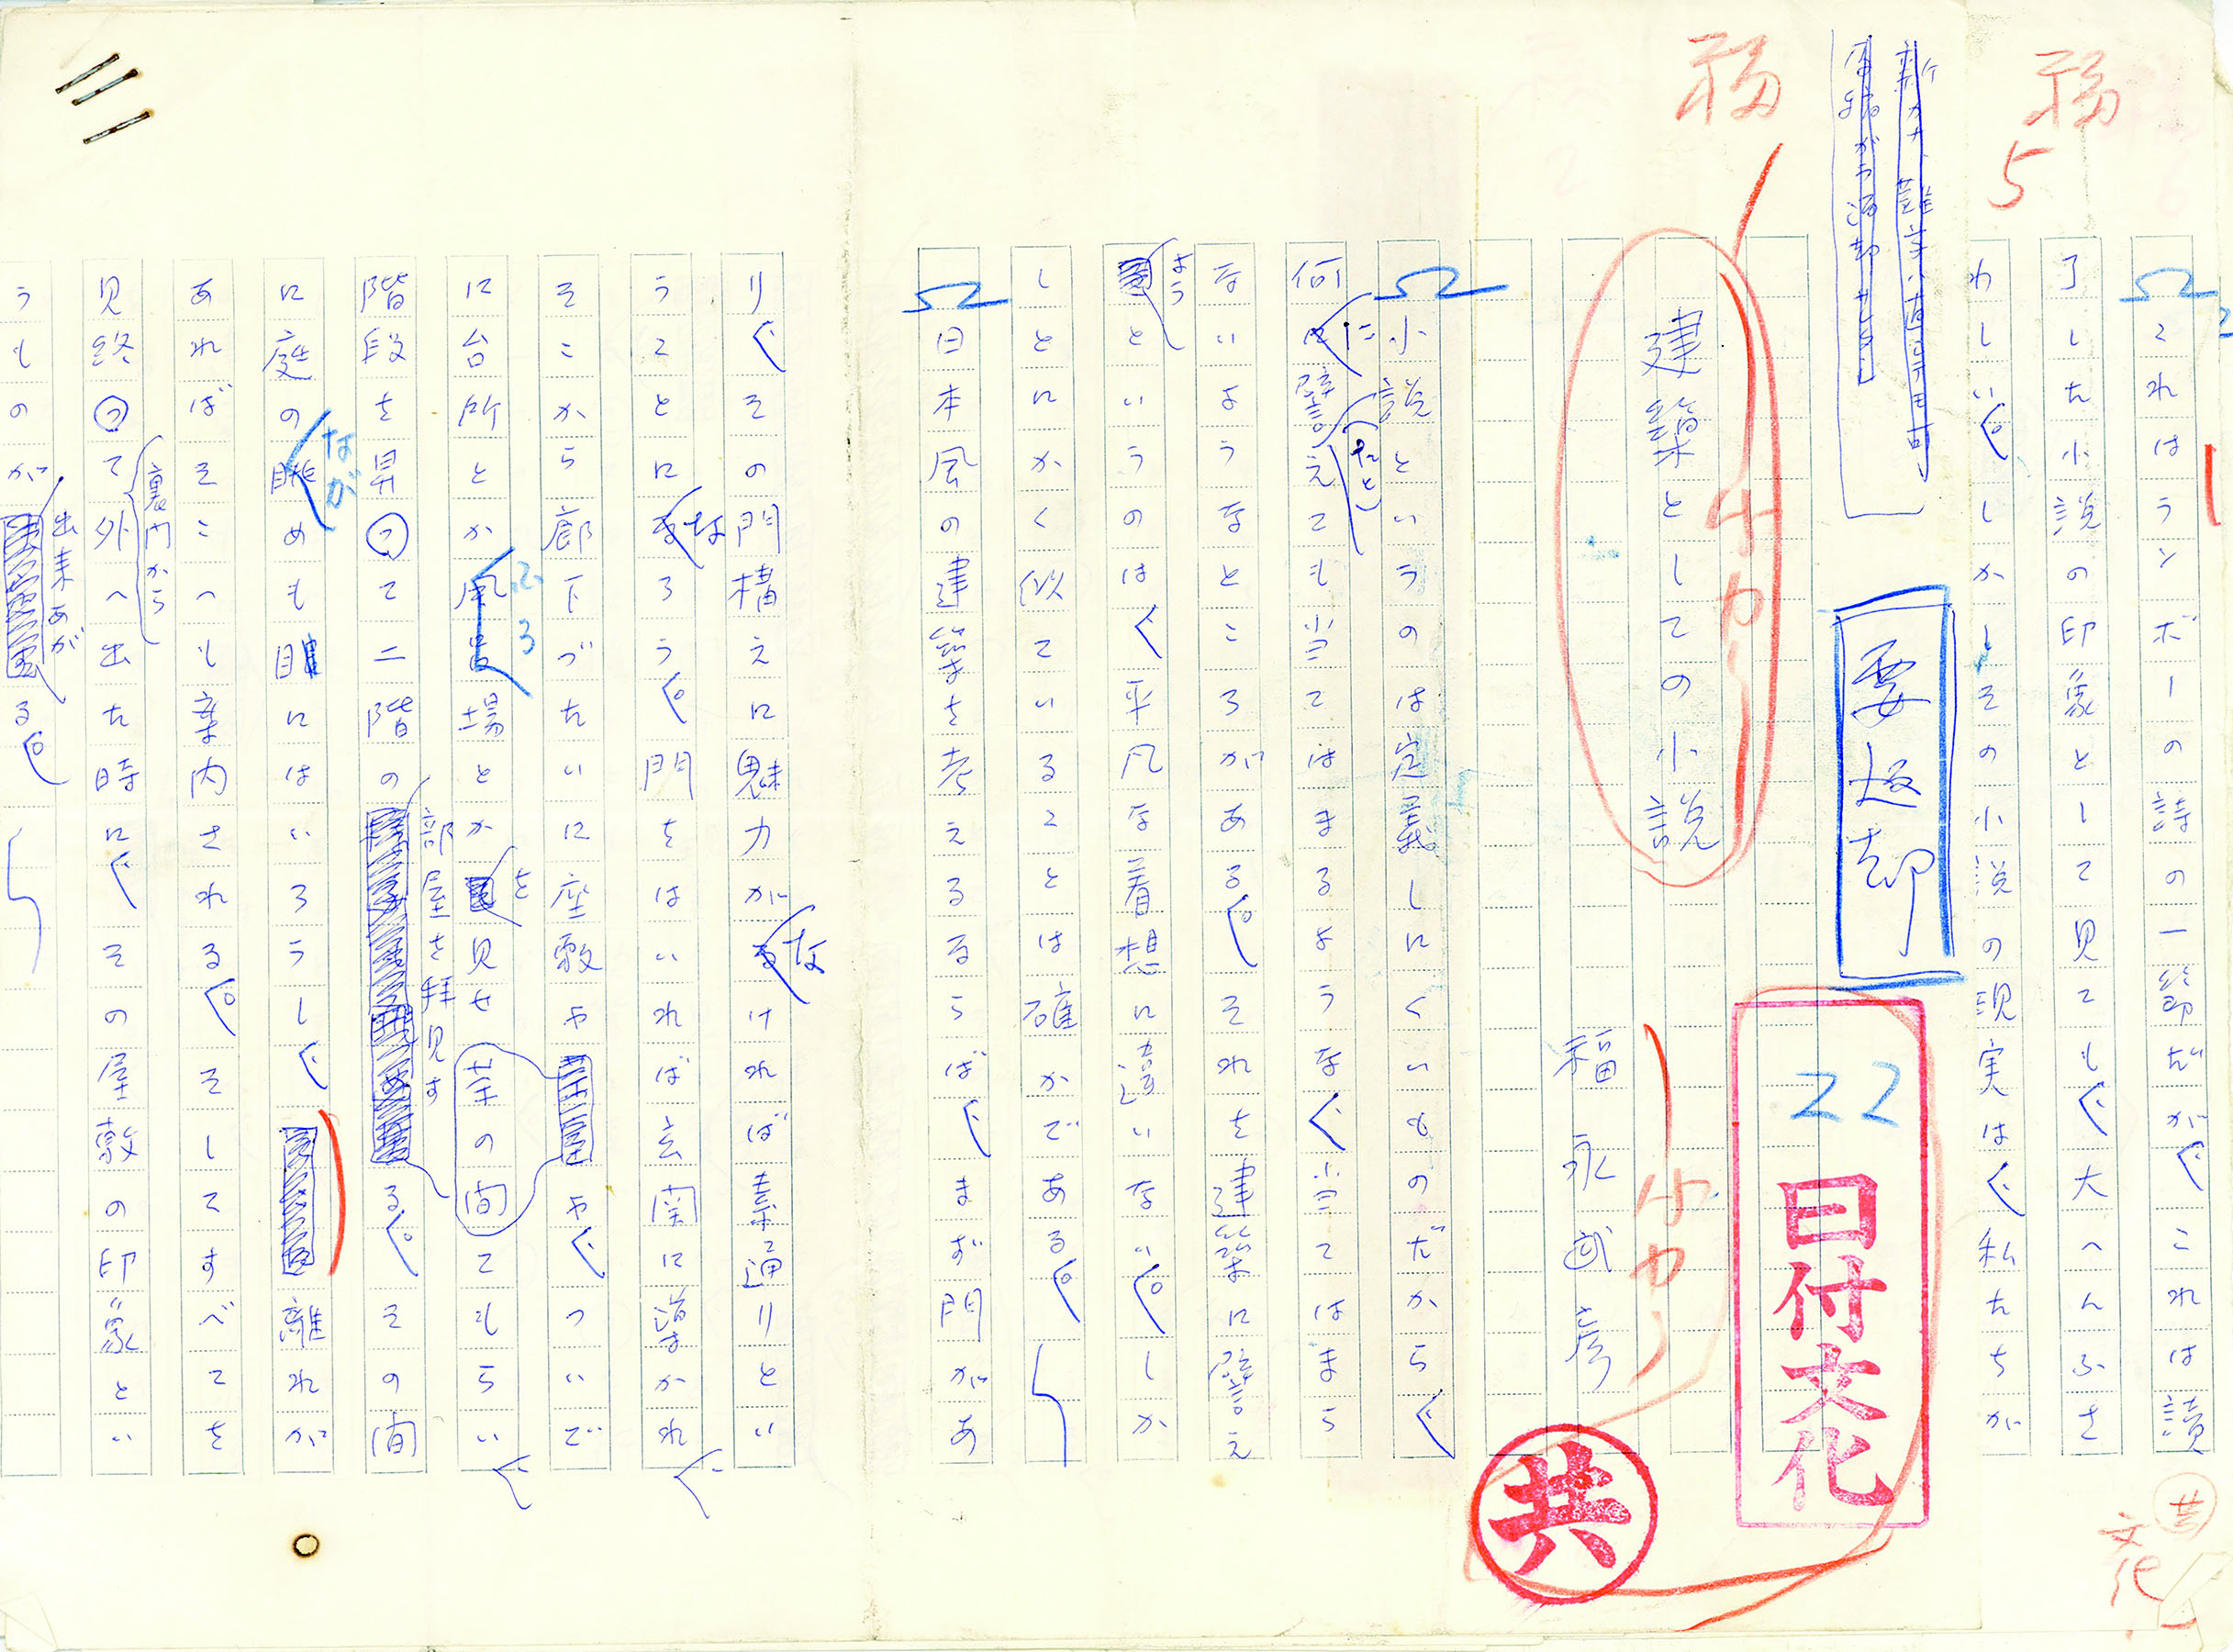 福
5
これはランボーの詩の一節だが、これは讀
了した小説の印象として見ても、大へんふさ
わしい。しかしその小説の現実は、私たちが
共
文化
福
要返却
22
日付文化
共
建築としての小説
小カ
福永武彦
小カ
小説というのは定義しにくいものだから、
何に譬(たと)えても当てはまるような、当てはまら
ないようなところがある。それを建築に譬え
ようというのは、平凡な着想に違いない。しか
しとにかく似ていることは確かである。
日本風の建築を考えるならば、まず門があ
り、その門構えに魅力がなければ素通りとい
うことになろう。門をはいれば玄関に導かれ、
そこから廊下づたいに座敷や茶の間や、ついで
に台所とか風呂(ふろ)場とかを見せてもらい、
階段を昇って二階の部屋を拝見する。その間
に庭の眺(なが)めも眼にはいろうし、離れが
あればそこへも案内される。そしてすべてを
見終って裏門から外へ出た時に、その屋敷の印象とい
うものが出来あがる。